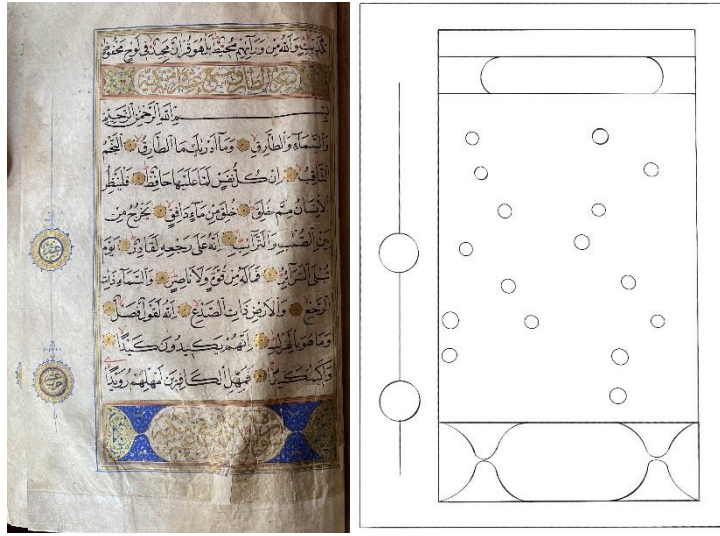 تكذيب والله من ورائهم محيط بل هو قرآن مجيد في لوح محفوظ
بسم الله الرحمن الرحيم
والسماء والطارق وما ادريك ما الطارق النجم
الثاقب ان كل نفس لما عليها حافظ فلينظر
الانسان مم خلق خلق من ماء دافق يخرج من
بين الصلب والترائب انه على رجعه لقادر يوم
تبلى السرائر فما له من قوة ولا ناصر والسماء ذات
الرجع والارض ذات الصدع انه لقول فصل
وما هو بالهزل انهم يكيدون كيدا
واكيد كيدا فمهل الكافرين امهلهم رويدا